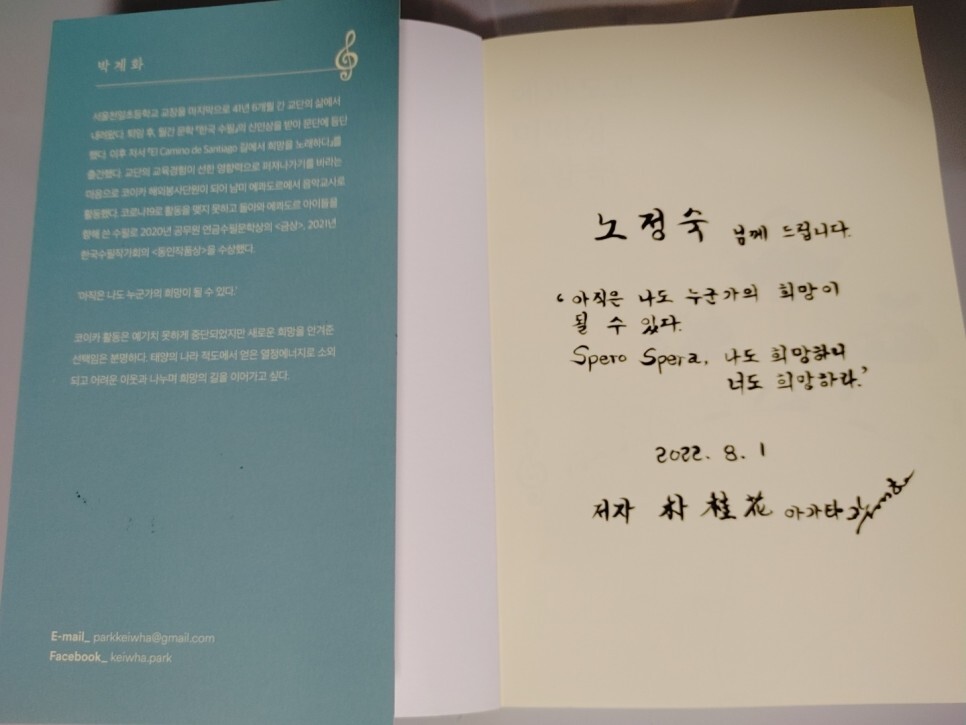 박계화
서울천일초등학교 교장을 마지막으로 41년 6개월 간 교단의 삶에서
내려왔다. 퇴임 후, 월간 문학 『한국 수필』의 신인상을 받아 문단에 등단
했다. 이후 저서 『El Camino de Santiago 길에서 희망을 노래하다』를
출간했다. 교단의 교육경험이 선한 영향력으로 퍼져나가기를 바라는
마음으로 코이카 해외봉사단원이 되어 남미 에콰도르에서 음악교사로
활동했다. 코로나19로 활동을 맺지 못하고 돌아와 에콰도르 아이들을
향해 쓴 수필로 2020년 공무원 연금수필문학상의 <금상>, 2021년
한국수필작가회의 <동인작품상>을 수상했다.
'아직은 나도 누군가의 희망이 될 수 있다.'
코이카 활동은 예기치 못하게 중단되었지만 새로운 희망을 안겨준
선택임은 분명하다. 태양의 나라 적도에서 얻은 열정에너지로 소외
되고 어려운 이웃과 나누며 희망의 길을 이어가고 싶다.
E-mail_ parkkeiwha@gmail.com
Facebook_ keiwha.park
노정숙 님께 드립니다.
'아직은 나도 누군가의 희망이
될 수 있다.
Spero Spera, 나도 희망하니
너도 희망하라.'
2022. 8. 1
저자 朴桂花 아가타